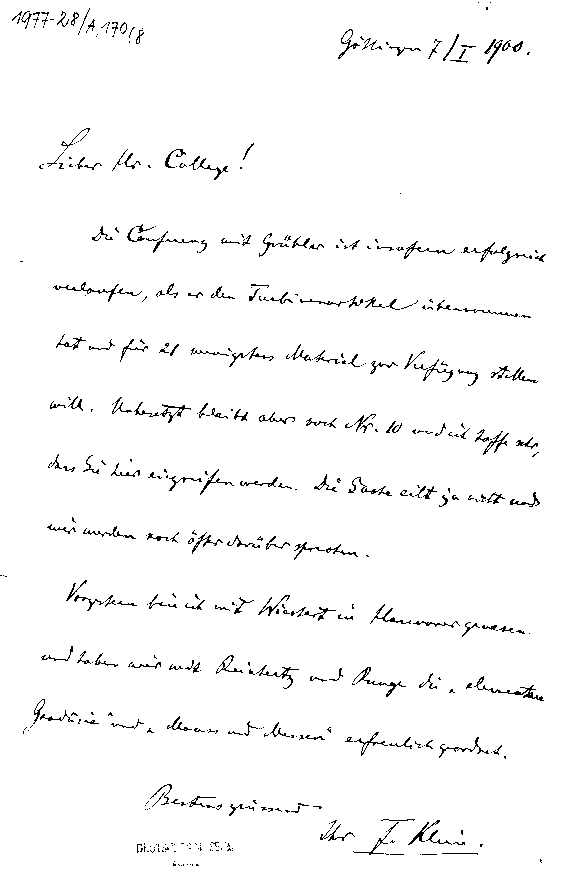 1977-28/A,170/8
Göttingen 7/I 1900.
Lieber Hr. College!
Die Conferenz mit Grübler ist insofern erfolgreich
verlaufen, als er den Turbinenartikel übernommen
hat und für 21 wenigstens Material zur Verfügung stellen
will. Unbesetzt bleibt aber noch Nr. 10 und ich hoffe sehr,
dass Sie hier eingreifen werden. Die Sache eilt ja nicht und
wir werden noch öfter darüber sprechen.
Vorgestern bin ich mit Wiechert in Hannover gewesen
und haben wir mit Reinhertz und Runge die "elementare
Geodäsie" und "Maass und Messen" erfreulich geordnet.
Bestens grüssend
Ihr F. Klein.